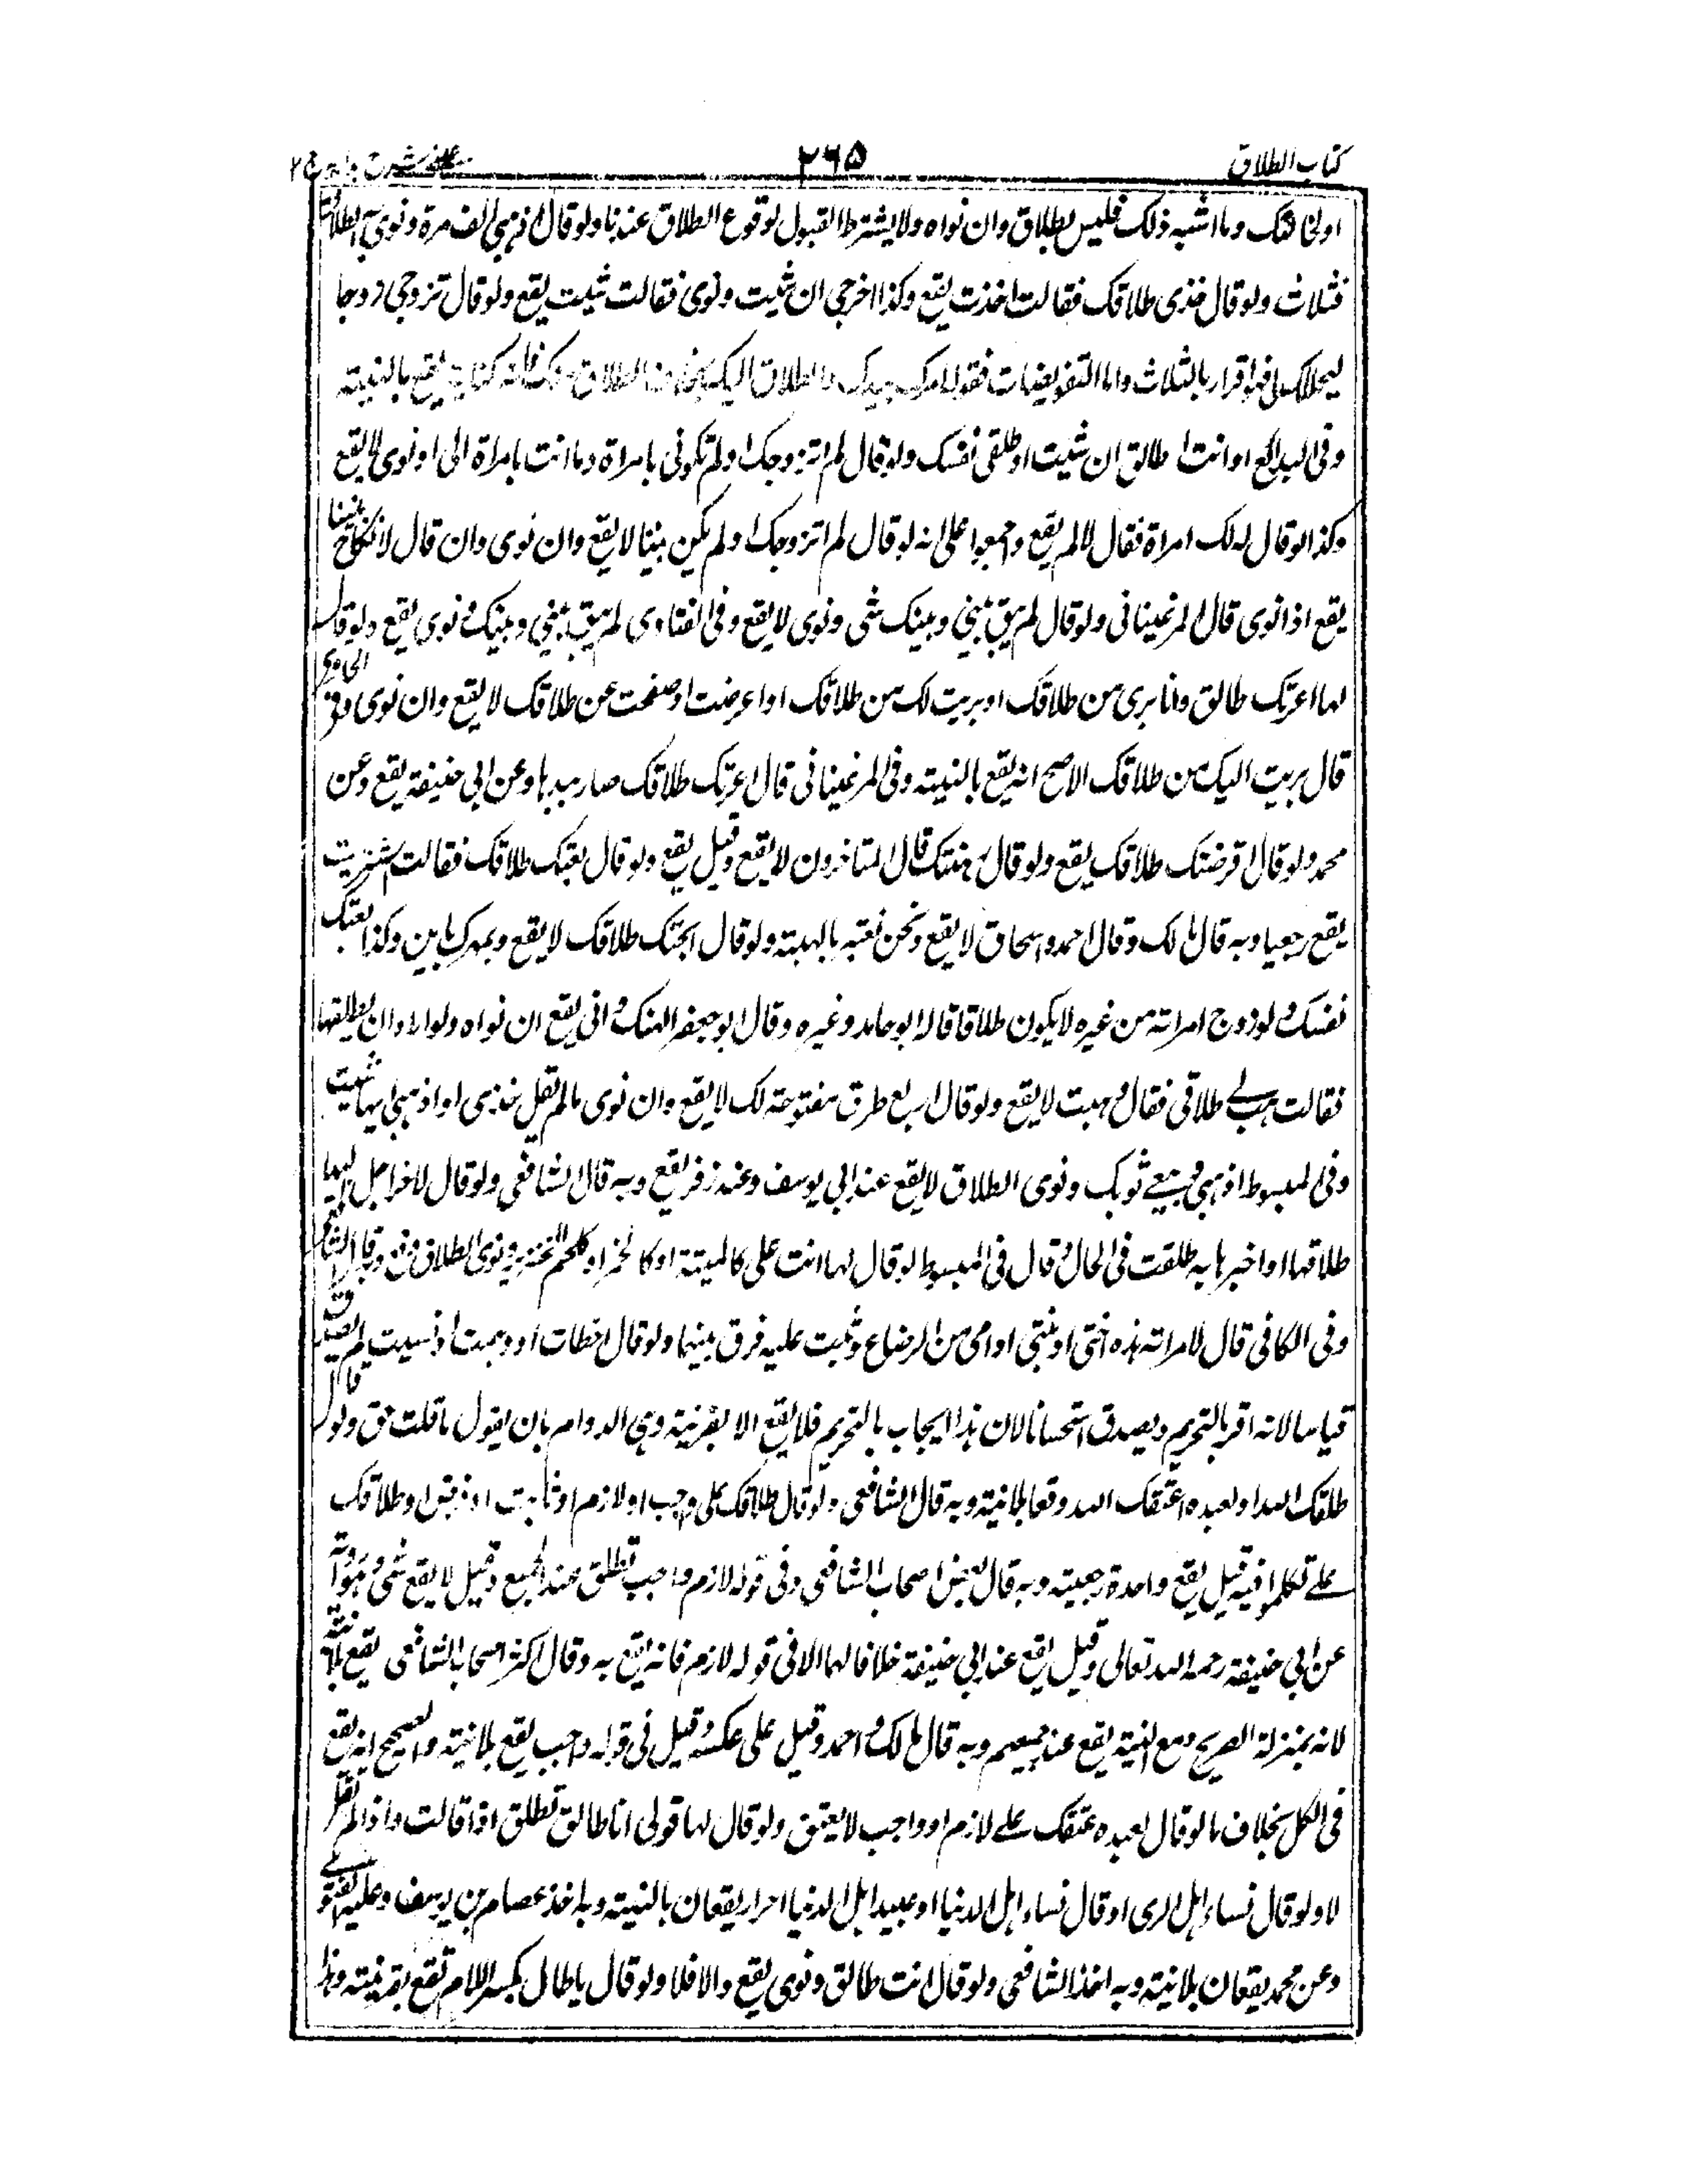 كتاب الطلاق ٢٦٥ عيني شرح هدايه ج ٢
او لمخافتك وما اشبه ذلك فليس بطلاق وان نواه ولا يشترط القبول لوقوع الطلاق عندنا ولو قال اذهبي الف مرة ونوى به الطلاق
فثلاث ولو قال خذى طلاقك فقالت اخذت يقع وكذا اخرجي ان شئت ونوى فقالت شئت يقع ولو قال تزوجي زوجا
ليحلك لي فهو اقرار بالثلاث واما التفويضات فقوله امرك بيدك والطلاق اليك كناية يقع بالنية
وفي البدائع او انت طالق ان شئت او طلقى نفسك ولو قال لم اتزوجك او لم تكوني بامراة وما انت بامراة الى او نوى لا يقع
وكذا لو قال له لك امراة فقال لا لم يقع واجمعوا على انه لو قال لم اتزوجك او لم يكن بيننا لا يقع وان نوى وان قال لا نكاح بيننا
يقع اذا نوى قال المرغينانى ولو قال لم يبق بيني وبينك شى ونوى لا يقع وفى الفتاوى لم يبق بيني وبينك ونوى يقع ولو قال
لها اعرتك طالق وانا برى من طلاقك او بريت لك من طلاقك او اعرضت او صفحت عن طلاقك لا يقع وان نوى وفى الحاوى
قال بريت اليك من طلاقك الاصح انه يقع بالنية وفى المرغينانى قال اعرتك طلاقك صار بيدها وعن ابي حنيفة يقع وعن
محمد ولو قال اقرضتك طلاقك يقع ولو قال رهنتك قال المتاخرون لا يقع وقيل يقع ولو قال بعتك طلاقك فقالت اشتريت
يقع رجعيا وبه قال مالك وقال احمد واسحاق لا يقع ونحن نعتبره بالهبة ولو قال ابحتك طلاقك لا يقع وبمهرك باين وكذا بعتك
نفسك ولو زوج امراته من غيره لا يكون طلاقا قاله ابو حامد وغيره وقال ابو جعفر الهندوانى يقع ان نواه ولو اراد ان يطلقها
فقالت هب لي طلاقى فقال وهبت لا يقع ولو قال اربع طرق مفتوحة لك لا يقع وان نوى ما لم يقل خذى او اذهبى ايها شئت
وفى المبسوط اذهبى وبيعي ثوبك ونوى الطلاق لا يقع عند ابي يوسف وعند زفر يقع وبه قال الشافعى ولو قال لاخر احمل اليها
طلاقها او اخبرها به طلقت فى الحال وقال فى المبسوط لو قال لها انت على كالميتة او كالخمر او كلحم الخنزير ونوى الطلاق وقع وبه قال الشافعى
وفى الكافى قال لامراته هذه اختى او بنتى او امى من الرضاع وثبت عليه فرق بينهما ولو قال اخطات او وهمت او نسيت لم يصدق
قياسا لانه اقر بالتحريم ويصدق استحسانا لان هذا ايجاب بالتحريم فلا يقع الا بقرينة وهى الدوام بان يقول ما قلت حق ولو قال
طلقك الله او لعبده اعتقك الله وقعا بلا نية وبه قال الشافعى ولو قال طلاقك على واجب او لازم او ثابت او فرض او طلاقك
علي تكلموا فيه قيل يقع واحدة رجعية وبه قال بعض اصحاب الشافعى وفى قوله لازم واجب تطلق عند الجميع وقيل لا يقع شى وهو رواية
عن ابي حنيفة رحمه الله تعالى وقيل يقع عند ابي حنيفة خلافا لهما الا فى قوله لازم فانه يقع به وقال اكثر اصحاب الشافعى يقع بلا نية
لانه بمنزلة الصريح ومع النية يقع عند جميعهم وبه قال مالك واحمد وقيل على عكسه وقيل فى قوله واجب يقع بلا نية والصحيح انه يقع
فى الكل بخلاف ما لو قال لعبده عتقك علي لازم او واجب لا يعتق ولو قال لها قولى انا طالق تطلق اذا قالت واذا لم تقل
لا ولو قال نساء اهل الرى او قال نساء اهل الدنيا او عبيد اهل الدنيا احرار يقعان بالنية وبه اخذ عصام بن يوسف وعليه الفتوى
وعن محمد يقعان بلا نية وبه اخذ الشافعى ولو قال انت طالق ونوى يقع والا فلا ولو قال يا طال بكسر اللام تقع بقرينة وذا